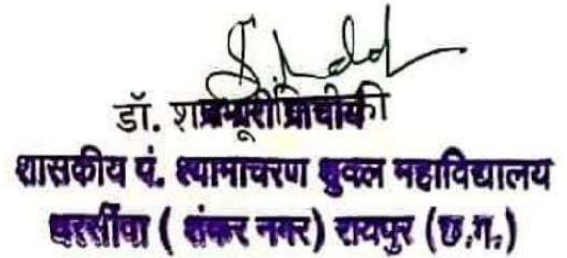 डॉ.
शासकीय पं. श्यामाचरण शुक्ल महाविद्यालय
धरसींवा ( शंकर नगर) रायपुर (छ.ग.)